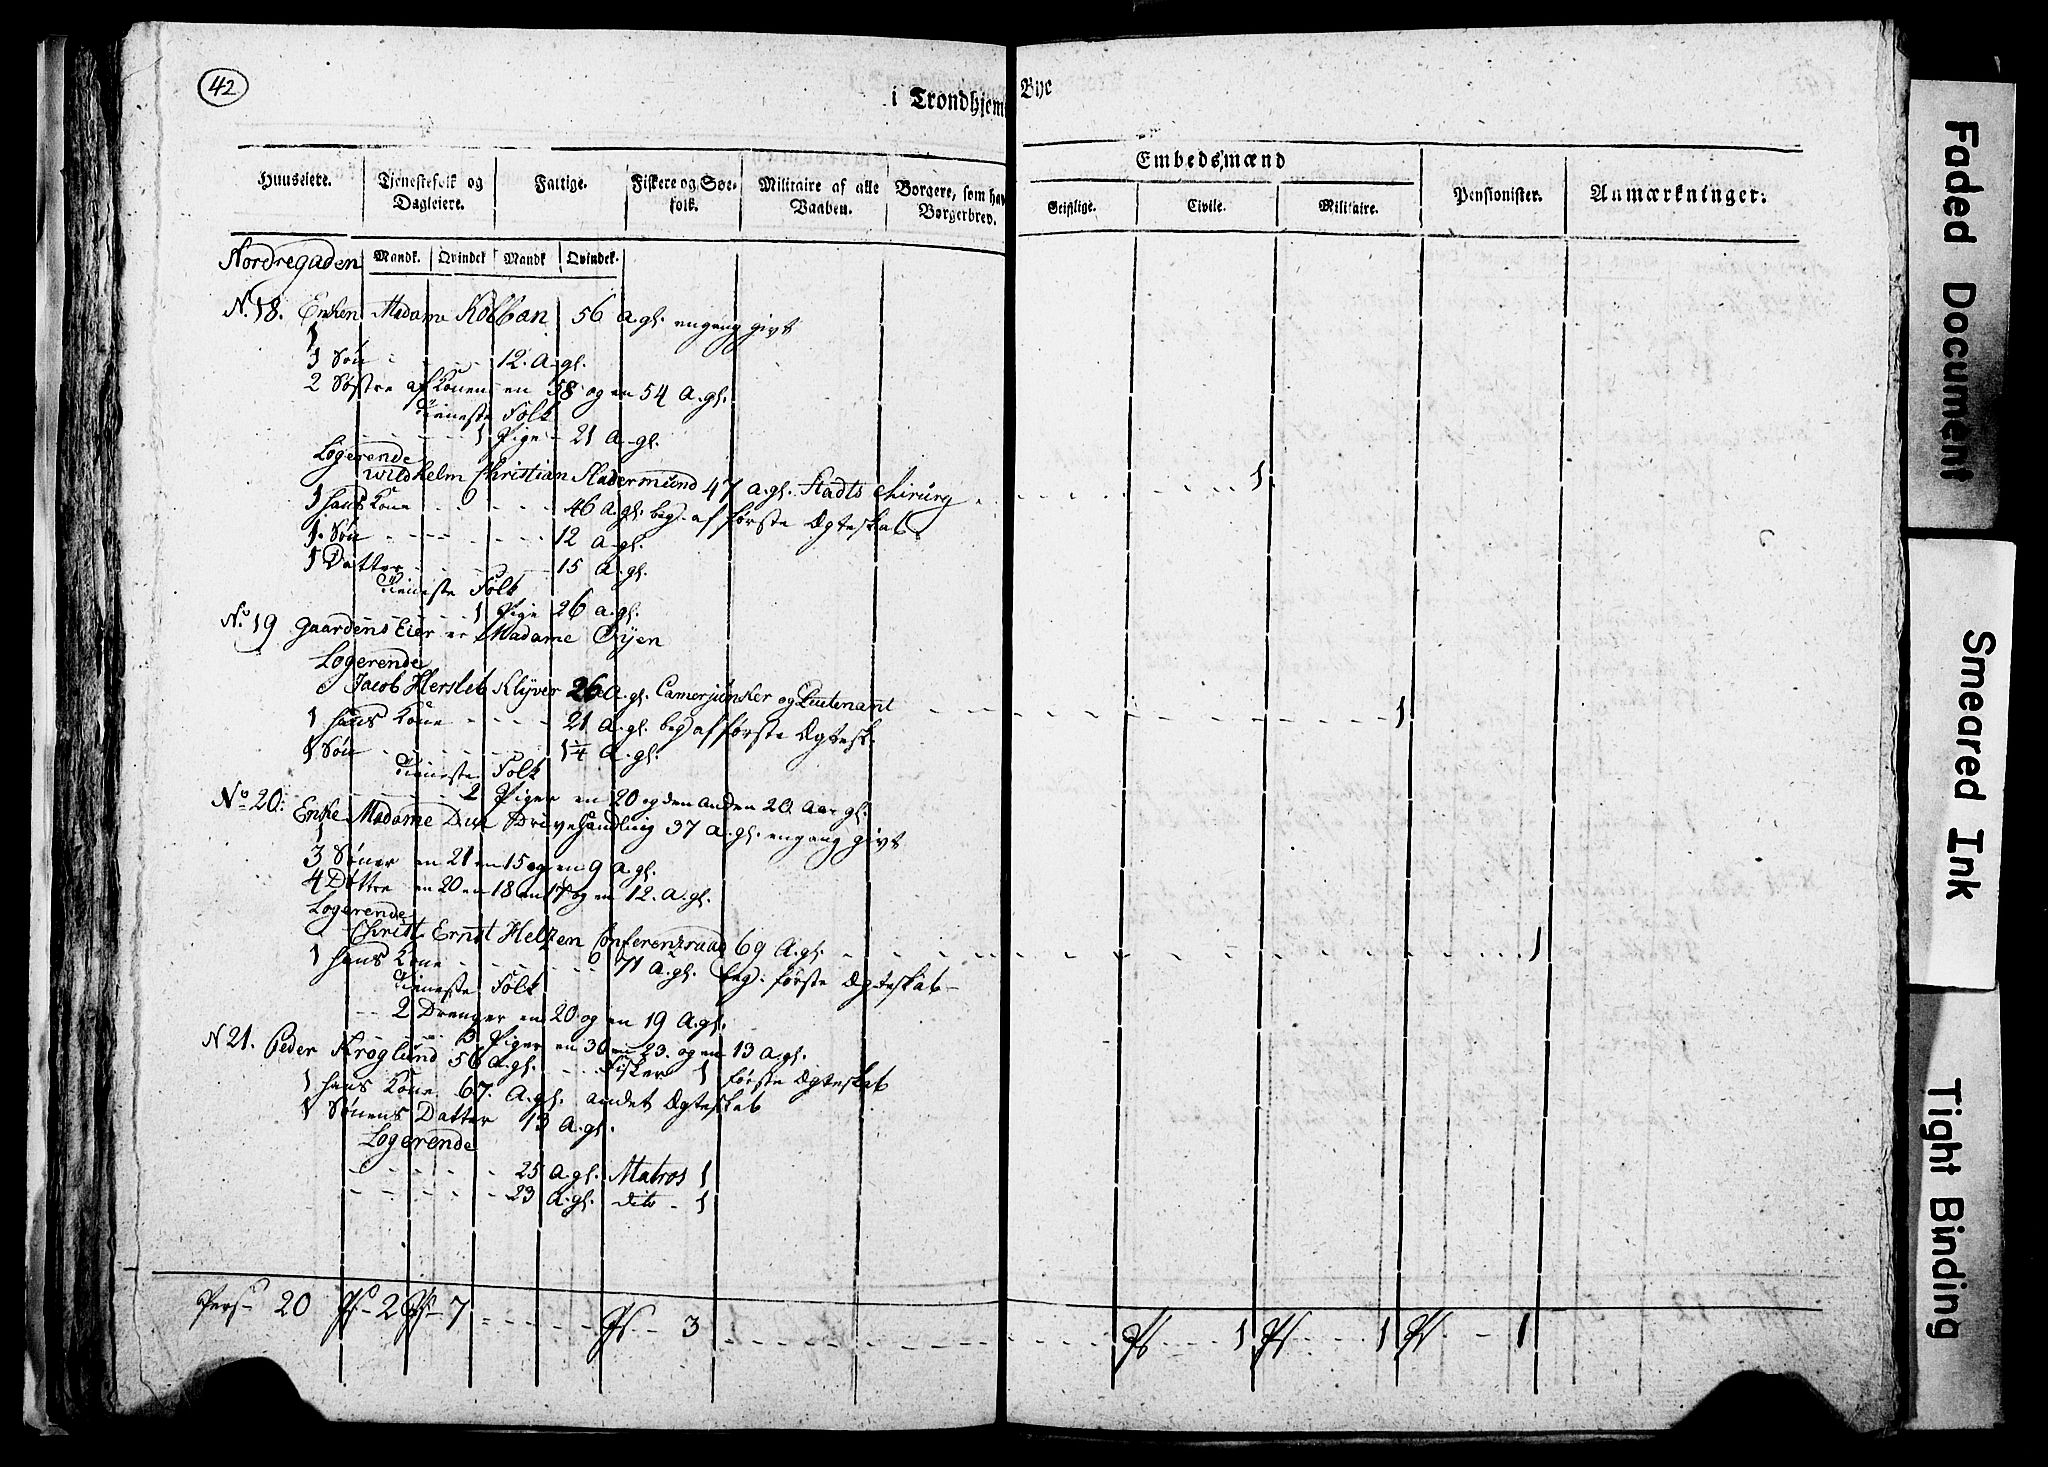 42
i Trondhjems Bye
Huuseiere. Tjenestefolk og Dagleiere. Fattige. Fiskere og Søefolk. Militaire af alle Vaaben. Borgere, som have Borgerbrev. Embedsmænd Geistlige. Civile. Militaire. Pensionister. Anmærkninger:
Nordregaden Mandk. Qvindek Mandk Qvindek.
N. 18. Enken Madame Kolban 56 A. gl. engang givt
1
1 Søn - - - 12. A. gl.
2 Søstre af Konen en 58 og en 54 A. gl.
Tieneste Folk
- - - 1 Pige - 21 A. gl.
Logerende
Wildhelm Christian Stadermünd 47 A. gl. Stadts Chirurg - - - 1
1 hans Kone - - - 46 A. gl. beg. af første Ægteskab
1. Søn - - - 12 A. gl.
1 Datter - - - 15 A. gl.
Tieneste Folk
- - - 1 Pige 26 A. gl.
No. 19 Gaardens Eier er Madame Øyen
Logerende
Jacob Hersleb Klÿver 26 A. gl. Camerjunker og Leutenant - - - 1
1 hans Kone - - - 21 A. gl. beg af første Ægtesk.
1 Søn - - - 1¼ A. gl.
Tieneste Folk
- - - 2 Piger en 20 og den anden 20 Aar gl.
No 20: Enke Madame Due Drive Handling 37 A. gl. engang givt
1
3 Søner en 21 en 15 og en 9 A. gl.
4 Døttre en 20 en 18 en 17 og en 12. A. gl.
Logerende
Christ. Ernst Helzen Conferenzraad 69 A. gl. - - - 1
1 hans Kone - - - 71 A. gl. beg. første Ægteskab -
Tieneste Folk
- - 2 Drenger en 20 og en 19 A. gl.
- - - 3 Piger en 30 en 23. og en 13 A. gl.
N 21. Peder Kroglund 56 A. gl. - - Fisker 1 første Ægteskab
1 hans Kone 67. A. gl. andet Ægteskab
1 Sønens Datter 13 A. gl.
Logerende
- - - 25 A. gl. Matros 1
- - - 23 A. gl. dito - 1
Pers - 20 Ps - 2 Ps - 7 - - - Ps - 3 - - - Ps - - 1 Ps - - 1 Ps - 1
Faded Document
Smeared Ink
Tight Binding